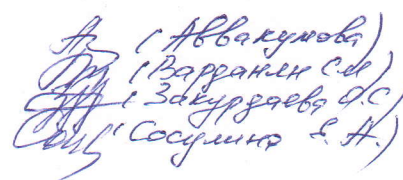 (Аввакумова)
(Варданян С.М)
(Закурдаева О.С)
(Сосулина Е.А.)